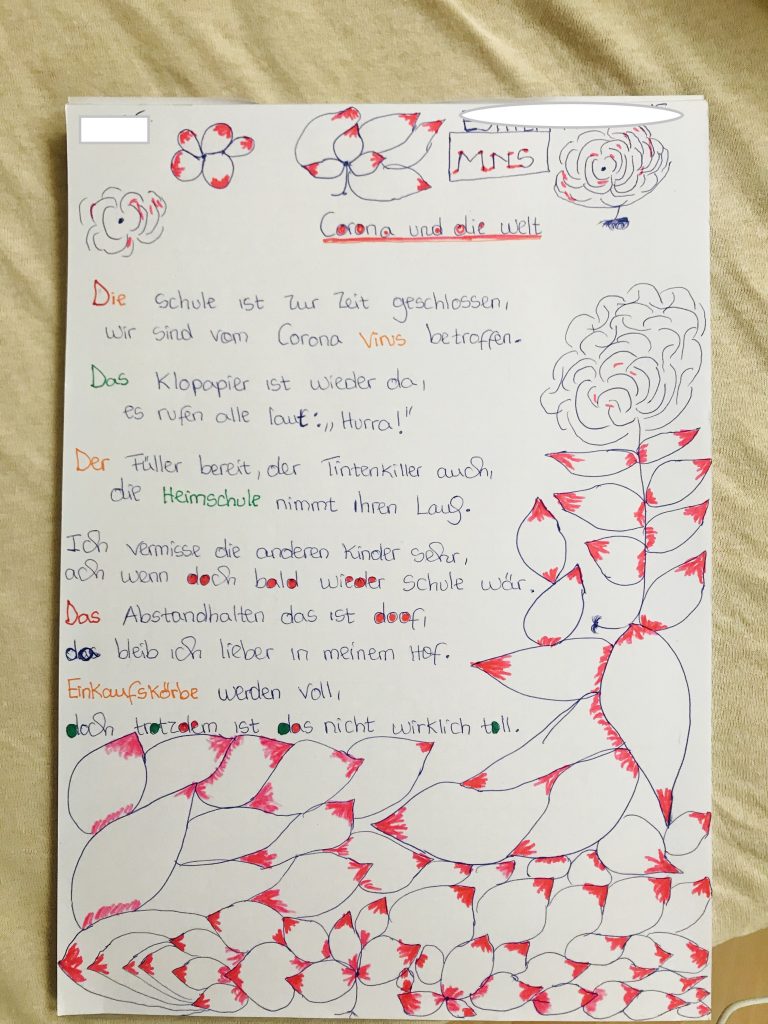 MNS
Corona und die Welt
Die Schule ist zur Zeit geschlossen,
wir sind vom Corona Virus betroffen.
Das Klopapier ist wieder da,
es rufen alle laut: „Hurra!"
Der Füller bereit, der Tintenkiller auch,
die Heimschule nimmt ihren Lauf.
Ich vermisse die anderen Kinder sehr,
ach wenn doch bald wieder Schule wär.
Das Abstandhalten das ist doof,
da bleib ich lieber in meinem Hof.
Einkaufskörbe werden voll,
doch trotzdem ist das nicht wirklich toll.